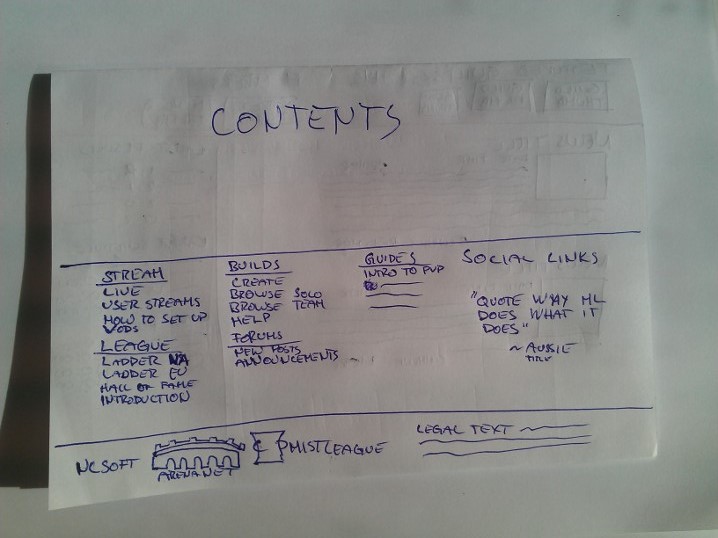 CONTENTS
STREAM
LIVE
USER STREAMS
HOW TO SET UP
VODS
LEAGUE
LADDER NA
LADDER EU
HALL OF FAME
INTRODUCTION
BUILDS
CREATE
BROWSE SOLO
BROWSE TEAM
HELP
FORUMS
NEW POSTS
ANNOUNCEMENTS
GUIDES
INTRO TO PVP
SOCIAL LINKS
"QUOTE WHY ML
DOES WHAT IT
DOES"
~ AUSSIE
NCSOFT
ARENANET
MISTLEAGUE
LEGAL TEXT